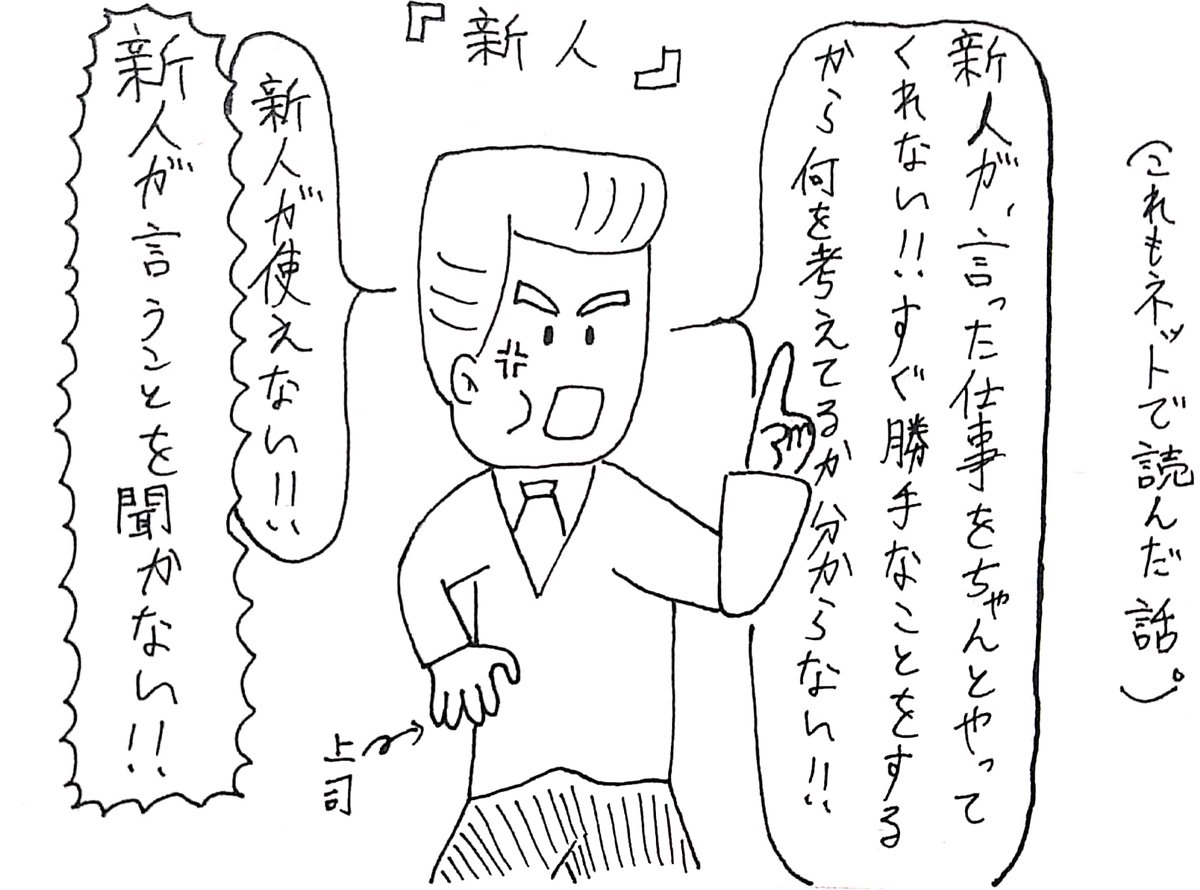 『新人』
（これもネットで読んだ話。）
新人が、言った仕事をちゃんとやって
くれない!!すぐ勝手なことをする
から何を考えてるか分からない!!
新人が使えない!!
新人が言うことを聞かない!!
上司